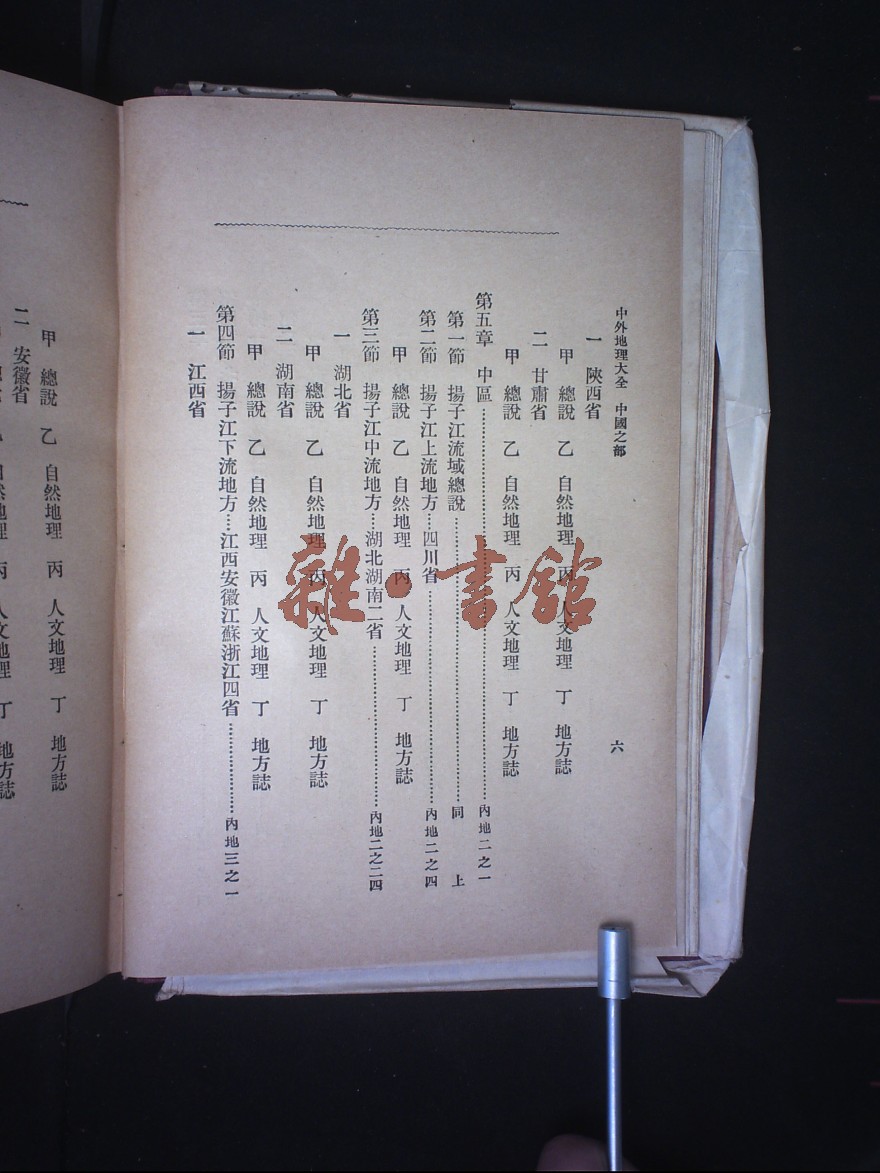 中外地理大全 中國之部 六
一 陝西省
甲 總說 乙 自然地理 丙 人文地理 丁 地方誌
二 甘肅省
甲 總說 乙 自然地理 丙 人文地理 丁 地方誌
第五章 中區……內地二之一
第一節 揚子江流域總說……同上
第二節 揚子江上流地方…四川省……內地二之四
甲 總說 乙 自然地理 丙 人文地理 丁 地方誌
第三節 揚子江中流地方…湖北湖南二省……內地二之二四
一 湖北省
甲 總說 乙 自然地理 丙 人文地理 丁 地方誌
二 湖南省
甲 總說 乙 自然地理 丙 人文地理 丁 地方誌
第四節 揚子江下流地方…江西安徽江蘇浙江四省……內地三之一
一 江西省
甲 總說 乙 自然地理 丙 人文地理 丁 地方誌
二 安徽省
雜·書館